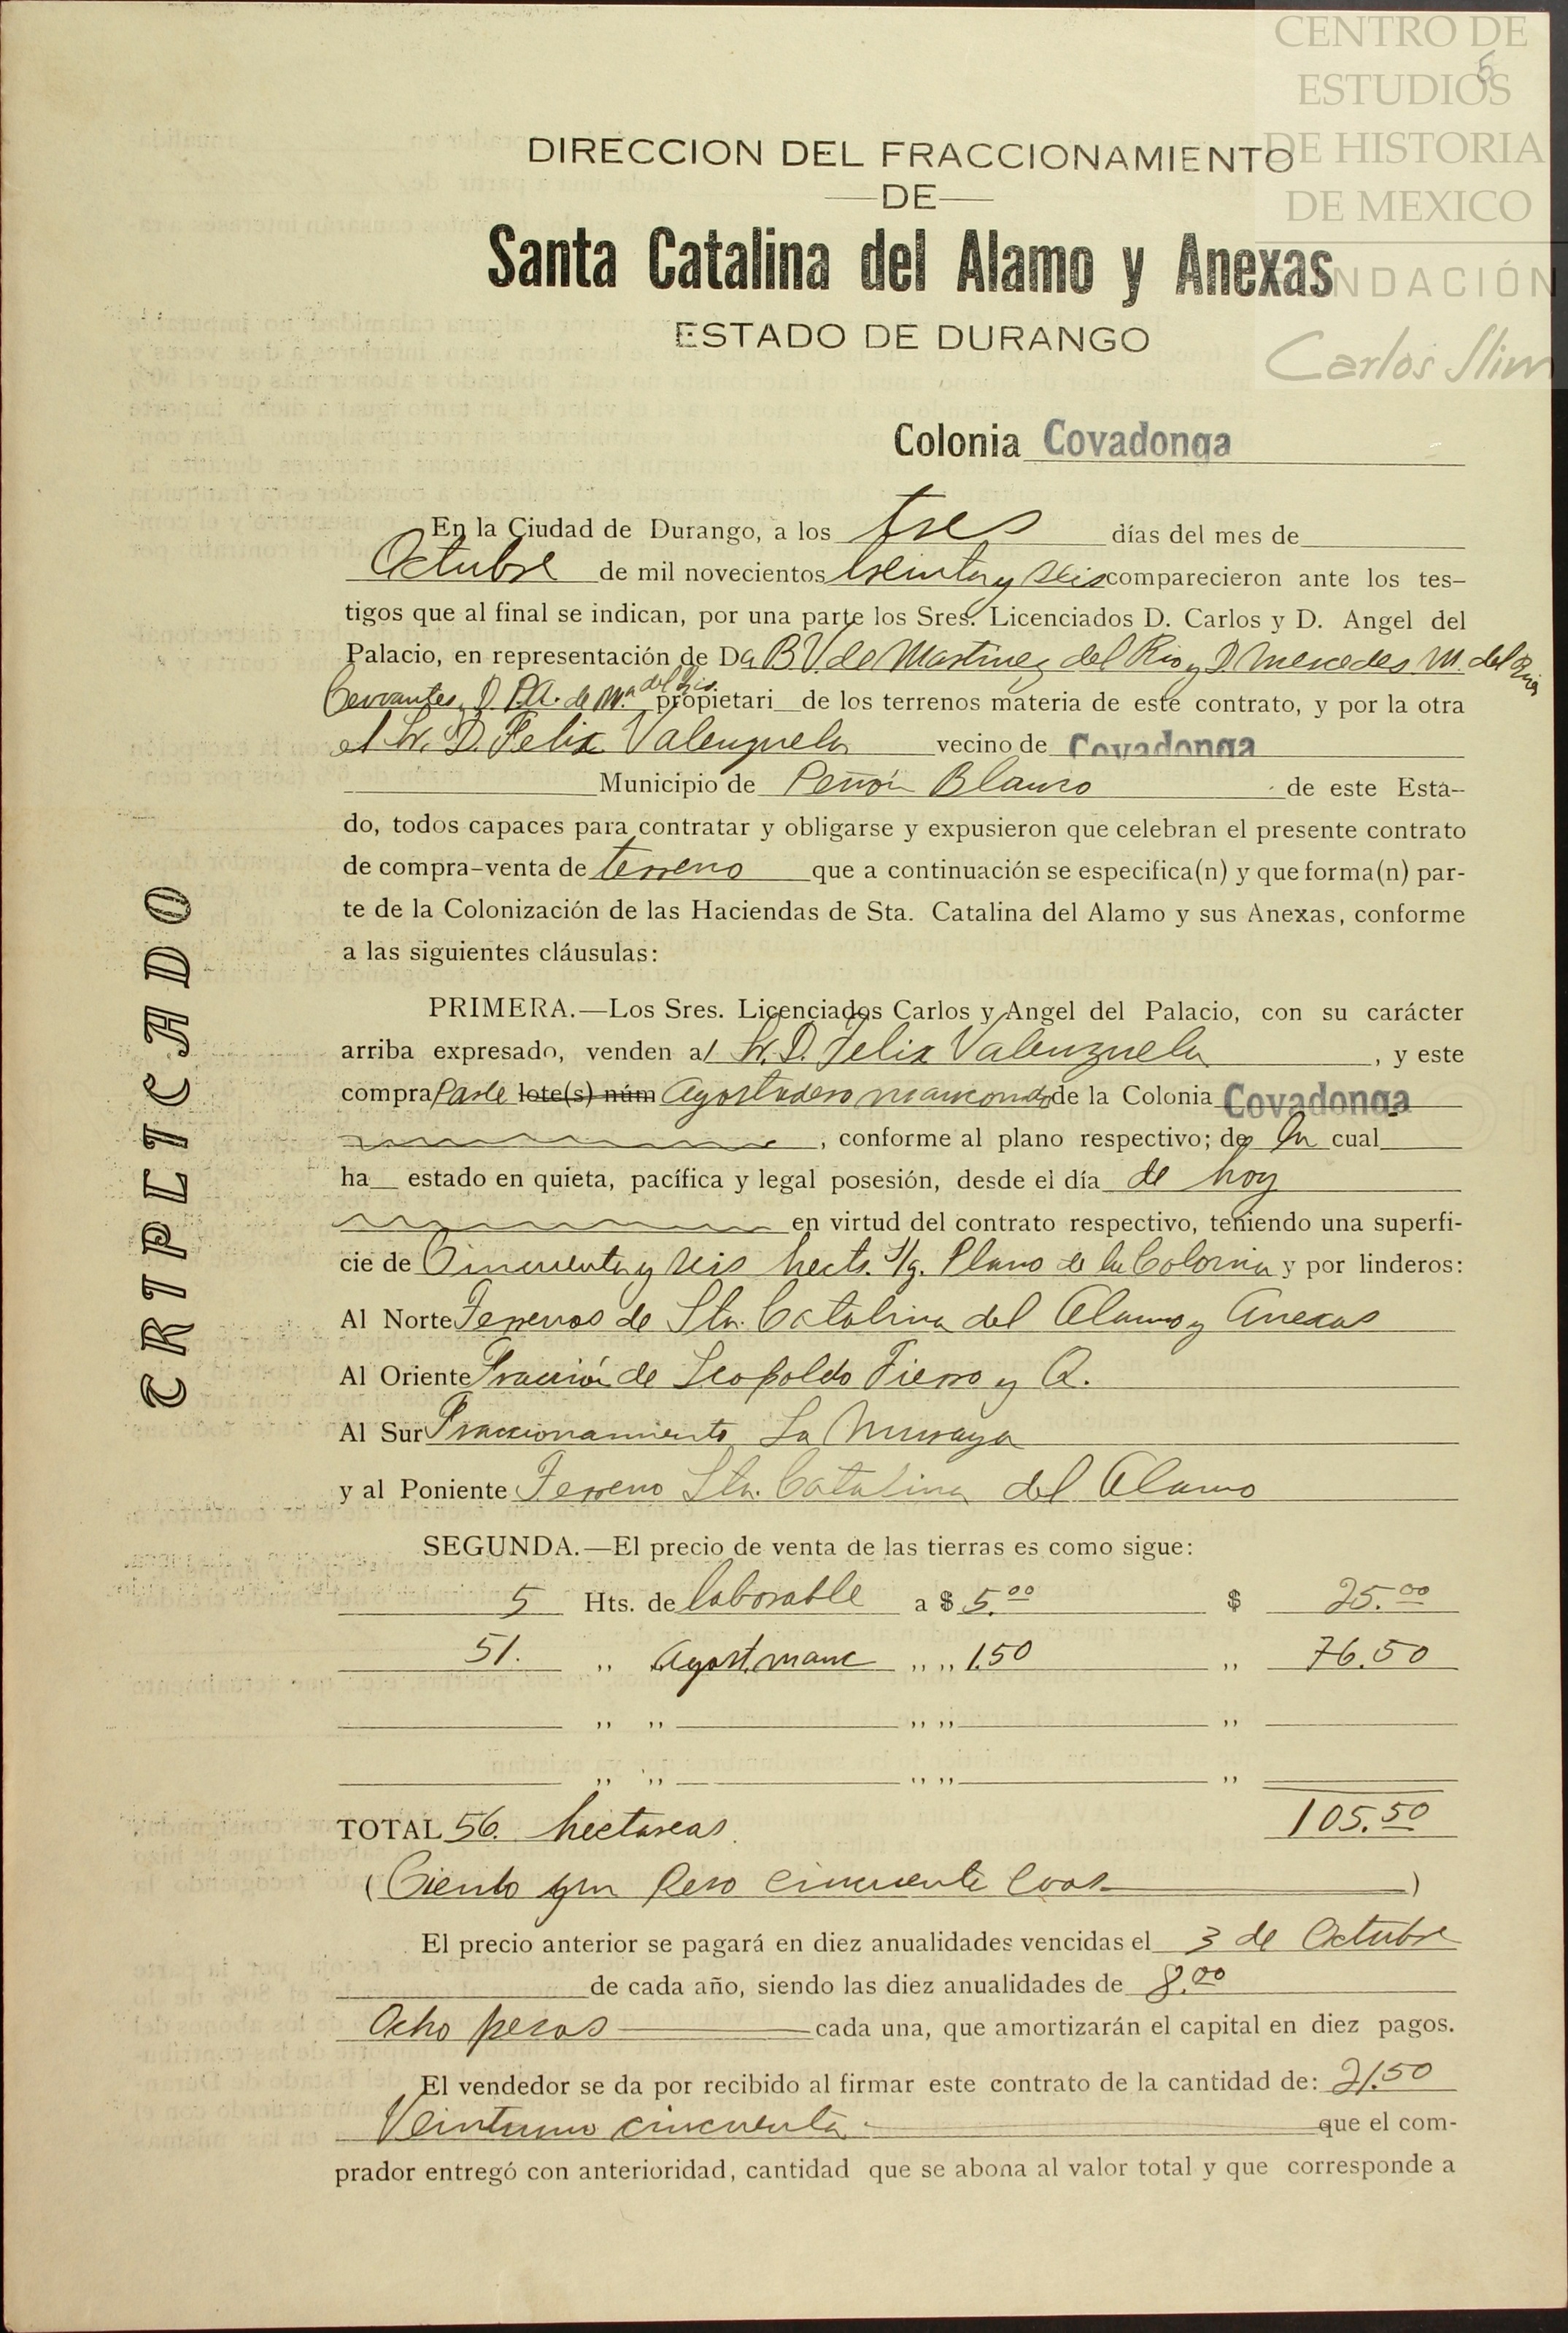 CENTRO DE
ESTUDIOS
DE HISTORIA
DE MEXICO
FUNDACIÓN
Carlos Slim
5
DIRECCION DEL FRACCIONAMIENTO
—DE—
Santa Catalina del Alamo y Anexas
ESTADO DE DURANGO
Colonia Covadonga
En la Ciudad de Durango, a los tres días del mes de
Octubre de mil novecientos treinta y seis comparecieron ante los tes-
tigos que al final se indican, por una parte los Sres. Licenciados D. Carlos y D. Angel del
Palacio, en representación de Da B V. de Martinez del Rio y D. Mercedes M. del Rio
Cervantes, D. P.A. de Ma. del Rio. propietari de los terrenos materia de este contrato, y por la otra
el Sr. D. Felix Valenzuela vecino de Covadonga
Municipio de Peñón Blanco de este Esta-
do, todos capaces para contratar y obligarse y expusieron que celebran el presente contrato
de compra-venta de terreno que a continuación se especifica(n) y que forma(n) par-
te de la Colonización de las Haciendas de Sta. Catalina del Alamo y sus Anexas, conforme
a las siguientes cláusulas:
PRIMERA.—Los Sres. Licenciados Carlos y Angel del Palacio, con su carácter
arriba expresado, venden al Sr. D. Felix Valenzuela, y este
compra Parte lote(s) núm Agostadero mancomún de la Colonia Covadonga
, conforme al plano respectivo; de la cual
ha estado en quieta, pacífica y legal posesión, desde el día de hoy
en virtud del contrato respectivo, teniendo una superfi-
cie de Cincuenta y seis hects. s/g. Plano de la Colonia y por linderos:
Al Norte Terrenos de Sta. Catalina del Alamo y Anexas
Al Oriente Fracción de Leopoldo Fierro y Q.
Al Sur Fraccionamiento La
y al Poniente Terreno Sta. Catalina del Alamo
SEGUNDA.—El precio de venta de las tierras es como sigue:
5 Hts. de laborable a $ 5.00 $ 25.00
51. ,, Agost. manc ,, ,, 1.50 ,, 76.50
,, ,, ,, ,, ,,
,, ,, ,, ,, ,,
TOTAL 56. hectareas. 105.50
(Ciento un Peso cincuenta )
El precio anterior se pagará en diez anualidades vencidas el 3 de Octubre
de cada año, siendo las diez anualidades de 8.00
Ocho pesos cada una, que amortizarán el capital en diez pagos.
El vendedor se da por recibido al firmar este contrato de la cantidad de: 21.50
Veintiuno cincuenta que el com-
prador entregó con anterioridad, cantidad que se abona al valor total y que corresponde a
TRIPLICADO